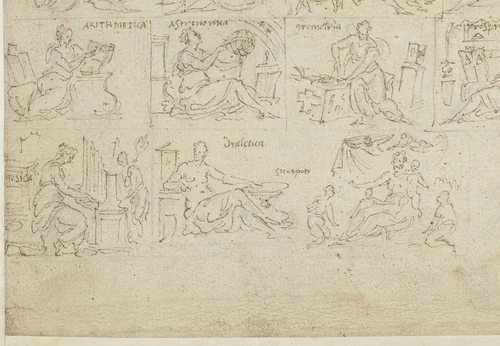 ARITHMETICA
Astronomia
geometria
prospe
MUSICA
Dialetica